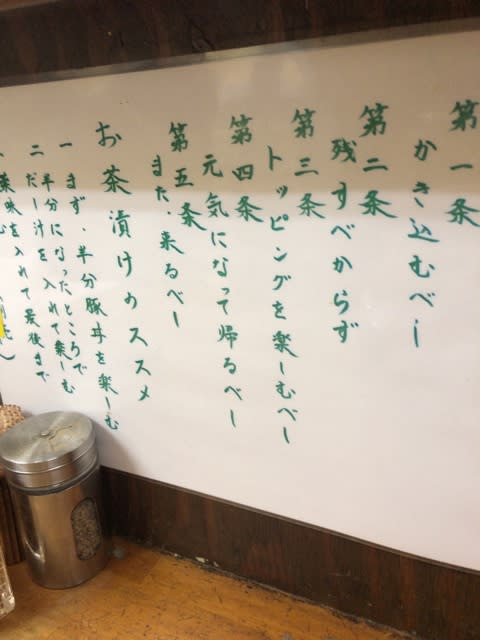 第一条
かき込むべし
第二条
残すべからず
第三条
トッピングを楽しむべし
第四条
元気になって帰るべし
第五条
また、来るべし
お茶漬けのススメ
一 まず、半分豚丼を楽しむ
二 半分になったところで
だし汁を入れて楽しむ
薬味を入れて最後まで